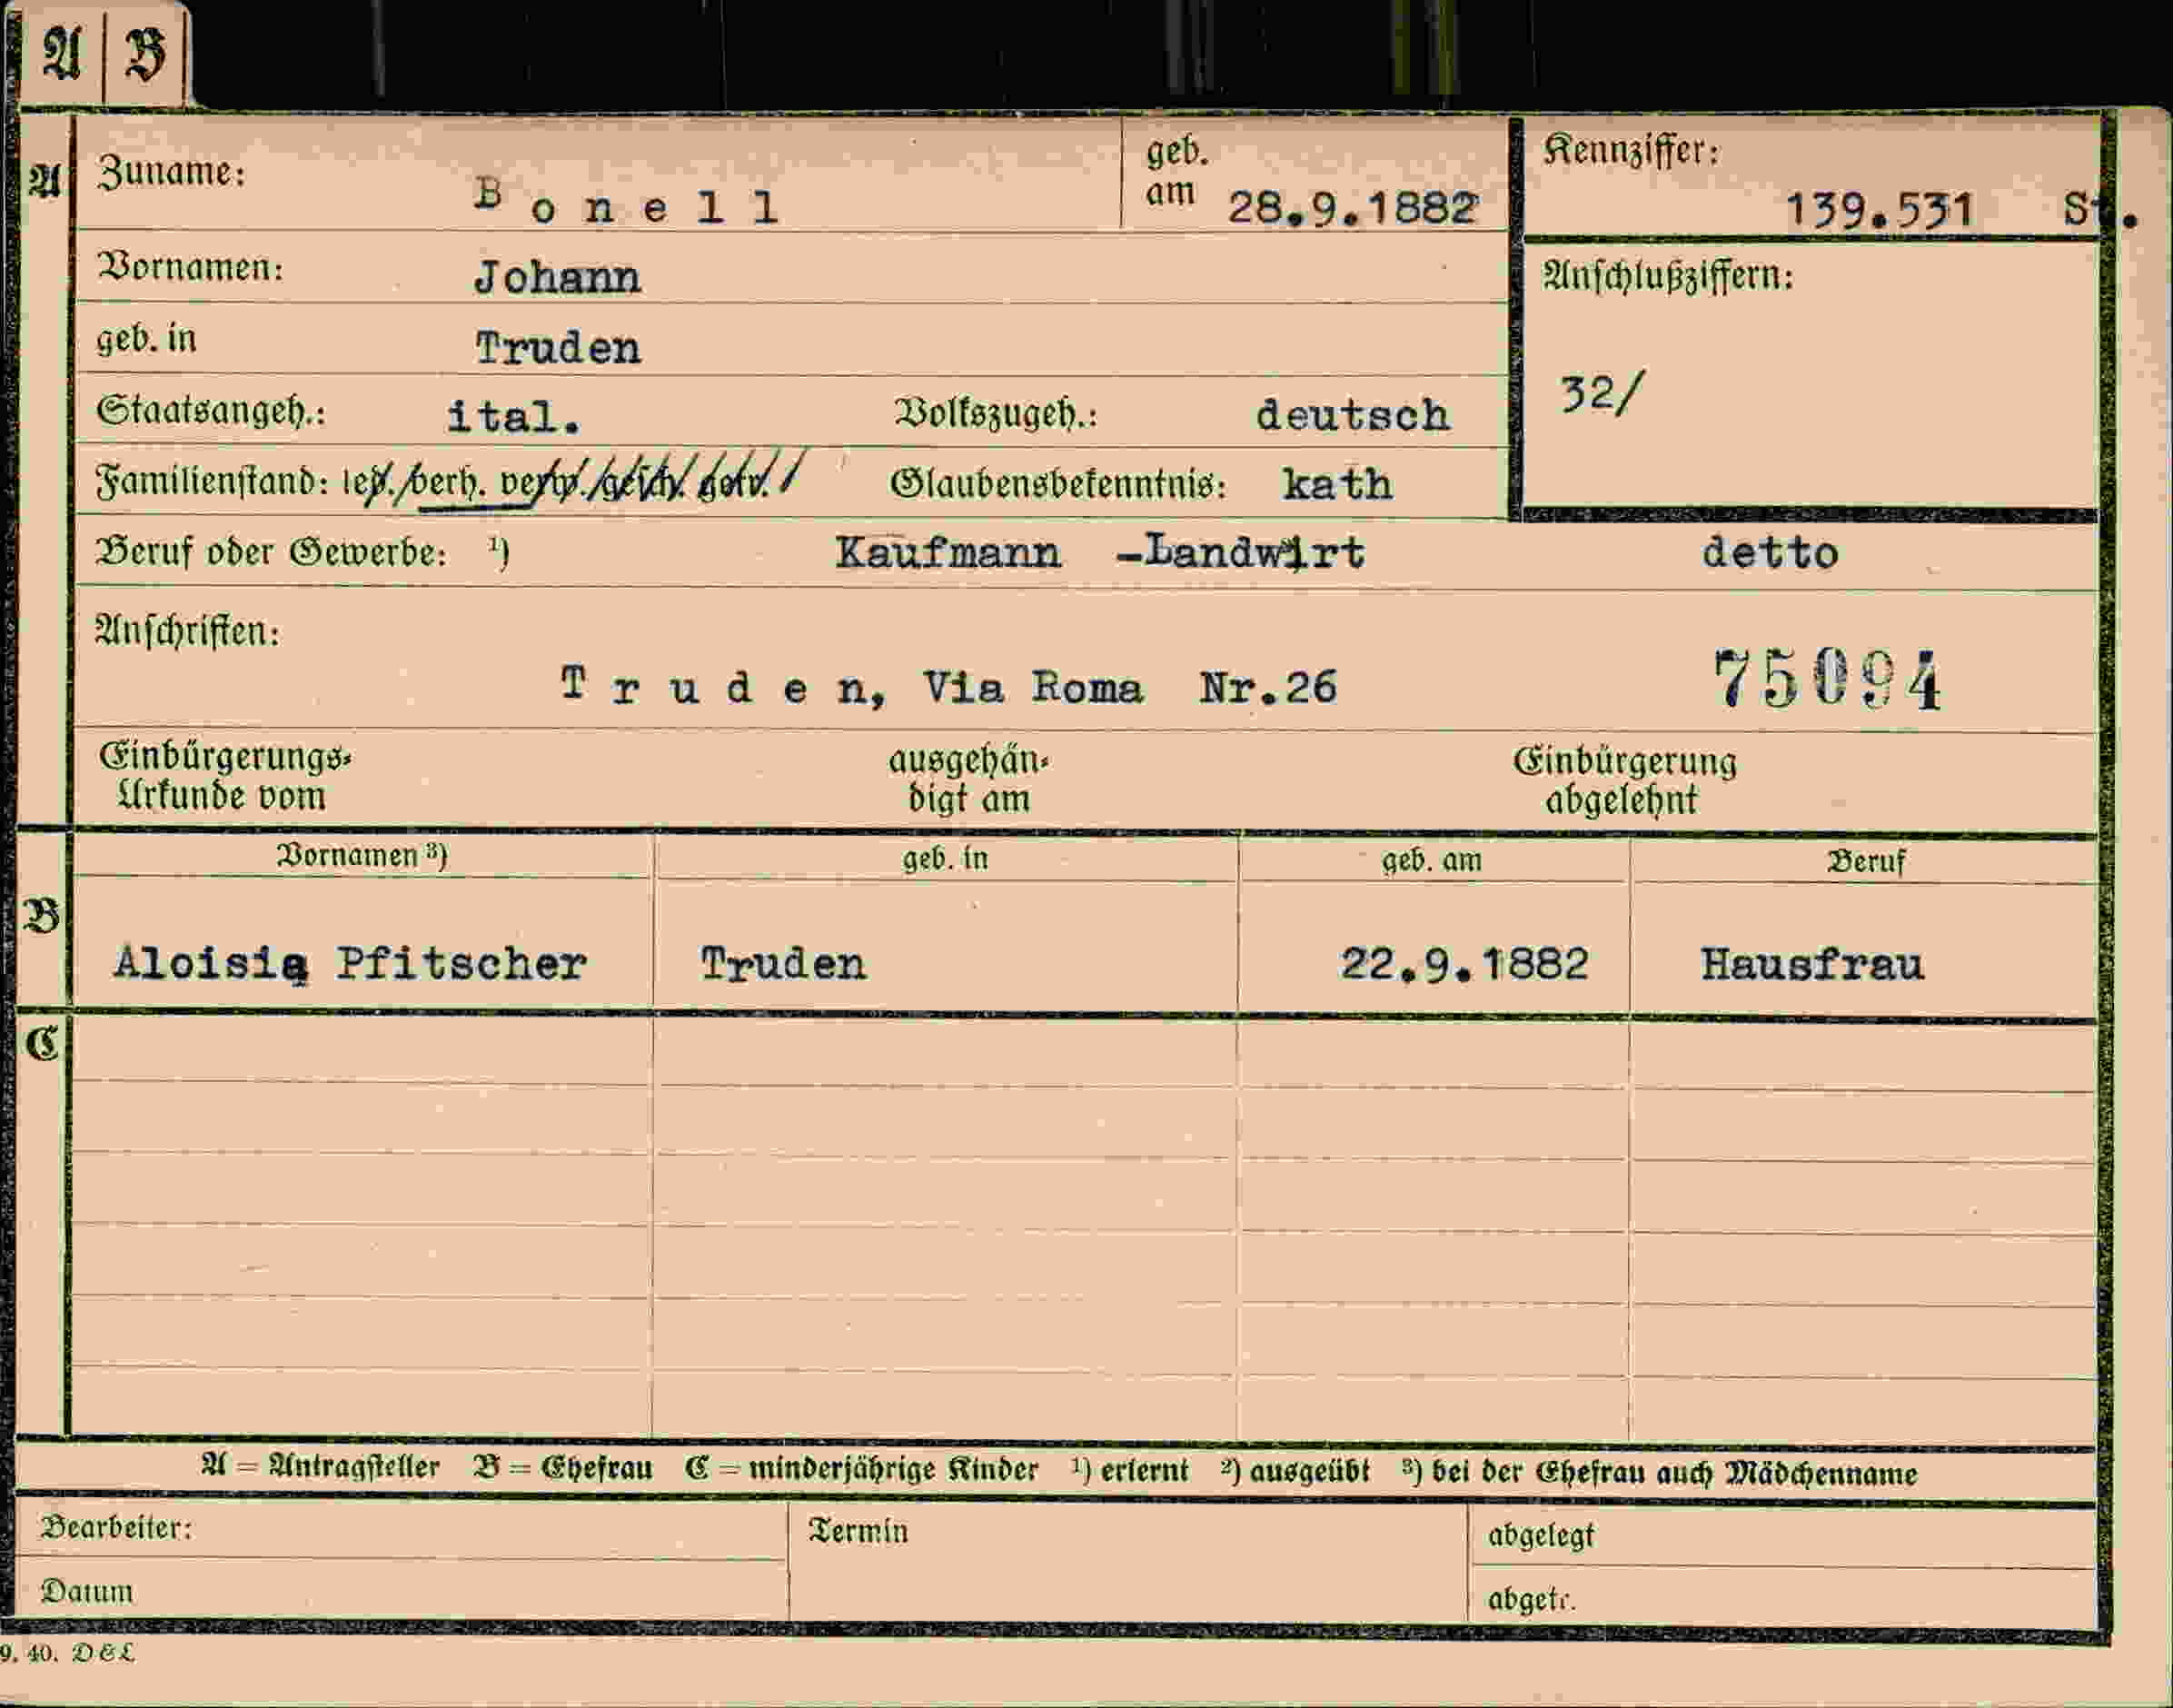 A B
A Zuname: Bonell geb. am 28.9.1882 Kennziffer: 139.531 St.
Vornamen: Johann Anschlußziffern:
geb. in Truden
32/
Staatsangeh.: ital. Volkszugeh.: deutsch
Familienstand: led./verh. verw./gesch. Glaubensbekenntnis: kath
Beruf oder Gewerbe: ¹) Kaufmann -Landwirt detto
Anschriften:
Truden, Via Roma Nr.26 75094
Einbürgerungs- ausgehän- Einbürgerung
Urkunde vom digt am abgelehnt
Vornamen ³) geb. in geb. am Beruf
B
Aloisia Pfitscher Truden 22.9.1882 Hausfrau
C
A = Antragsteller B = Ehefrau C = minderjährige Kinder ¹) erlernt ²) ausgeübt ³) bei der Ehefrau auch Mädchenname
Bearbeiter: Termin abgelegt
Datum abgetr.
9. 40. D & L